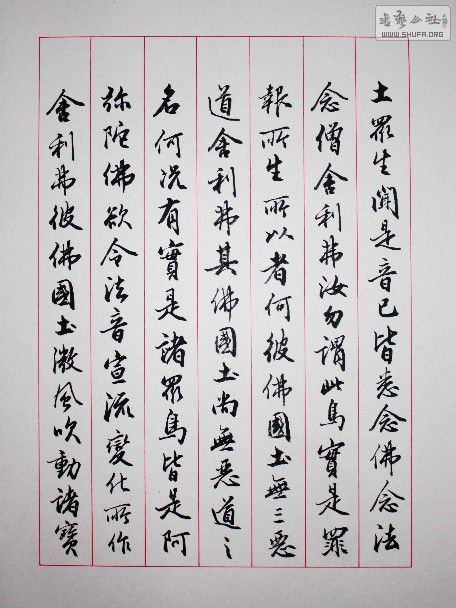 土眾生聞是音已皆悉念佛念法
念僧舍利弗汝勿謂此鳥實是罪
報所生所以者何彼佛國土無三惡
道舍利弗其佛國土尚無惡道之
名何况有實是諸眾鳥皆是阿
弥陀佛欲令法音宣流變化所作
舍利弗彼佛國土微風吹動諸寶
書藝公社
WWW.SHUFA.ORG